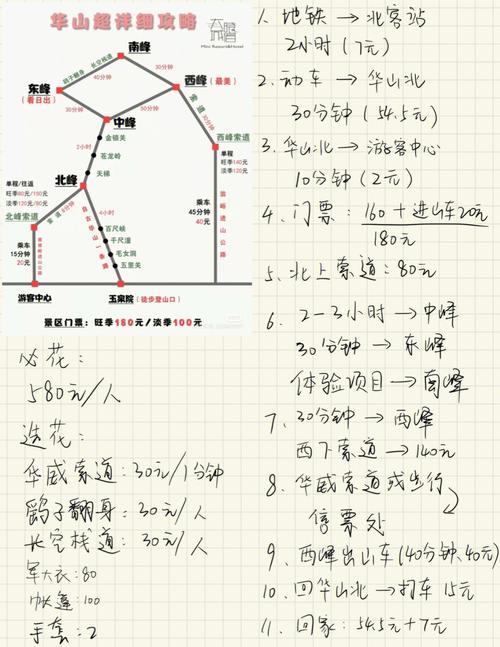 华山超详细攻略
Mini Resort&Hotel
南峰
鹞子翻身
长空栈道
30分钟
30分钟
东峰
(看日出)
西峰(最美)
30分钟
50分钟
中峰
金锁关
2小时
苍龙岭
天梯
索道
30分钟
西峰索道
单程
旺季140元
淡季120元
北峰
单程/往返
旺季80元/150元
淡季45元/80元
北峰索道
索道
4小时
百尺峡
千尺潼
毛女洞
五里关
乘车
45分钟
40元
乘车
15分钟
20元
游客中心
玉泉院(徒步登山口)
景区门票:旺季180元/淡季100元
必花:
580元/人
选花:
华威索道:30元/1分钟
鹞子翻身:30元/人
长空栈道:30元/人
军大衣:80
帐篷:100
手套:2
1、地铁→北客站
2小时(7元)
2.动车→华山北
30分钟(54.5元)
3、华山北→游客中心
10分钟(2元)
4、门票:160+进山车20元
180元
5、北上索道:80元
6、2-3小时→中峰
30分钟→东峰
体验项目→南峰
7、30分钟→西峰
西下索道→140元
8、华威索道或步行
售票处
9、西峰出山车(40分钟、40元)
10、回华山北→打车15元
11、回家:54.5元+7元